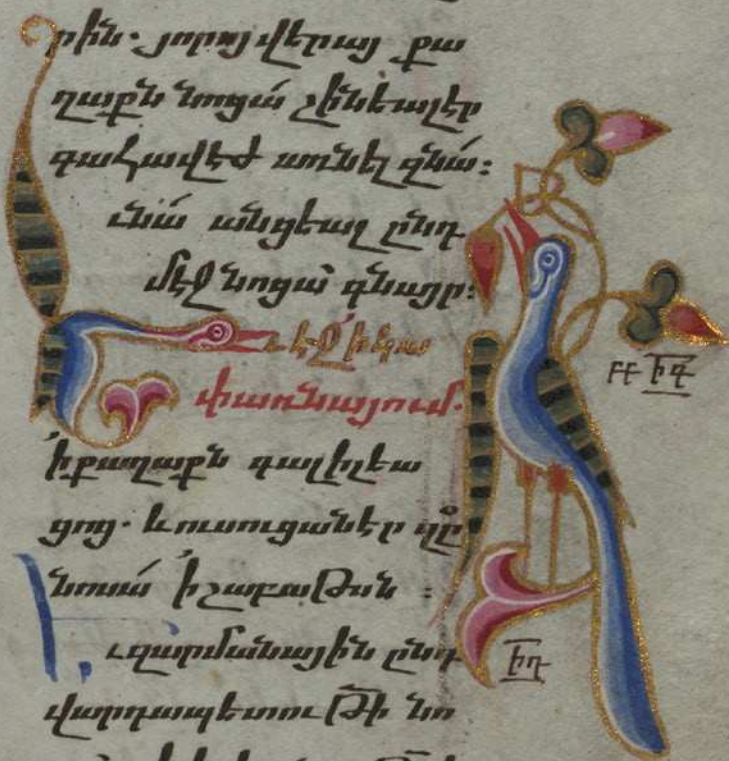 րին. յորոյ վերայ քա
ղաքն նոցա շինեալ էր
գահավէժ առնել զնա:
Ւնա անցեալ ընդ
մէջ նոցա գնայր:
Եւ էջ ի կա
փառնայում.
ի քաղաքն գալիլեա
ցոց. և ուսուցանէր զը
նոսա ի շաբաթսն :
Եւ զարմանային ընդ
վարդապետութի նո
իգ
իդ